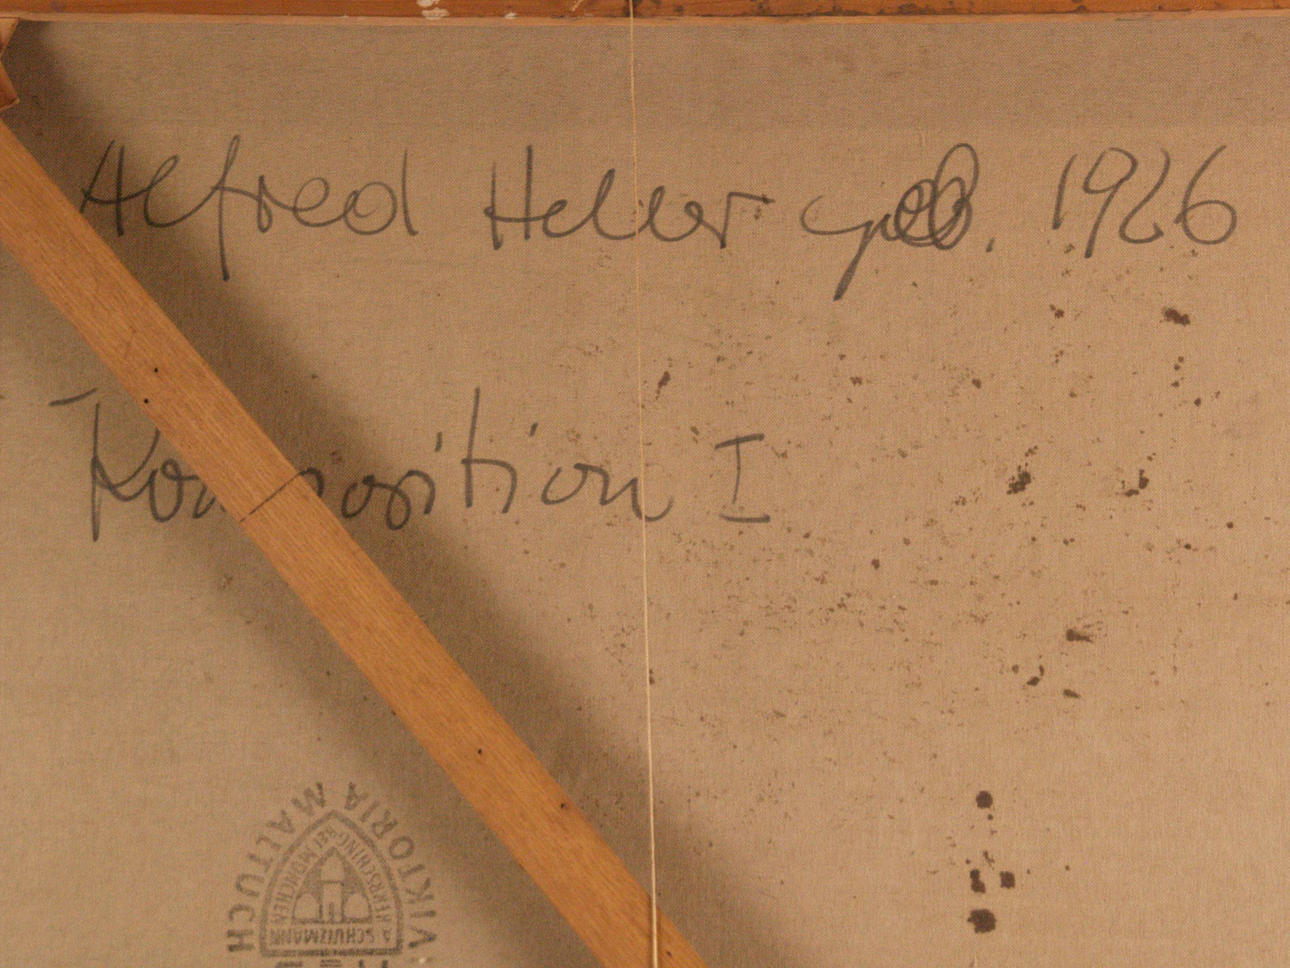 Alfred Heller geb. 1926
Komposition I
VIKTORIA MALTUCH
A. SCHUTZMANN
HERRSCHING BEI MÜNCHEN